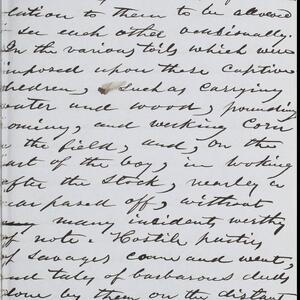 lution to them to be allowed
see each other occasionally.
In the various toils which were
imposed upon these captive
children, such as carrying
water and wood, pounding
hominy, and working corn
in the field, and, on the
part of the boy, in looking
after the stock, nearly a
year passed off, without
many incidents worthy
of note. Hostile parties
of savages came and went,
and tales of barbarous deeds
done by them on the distant